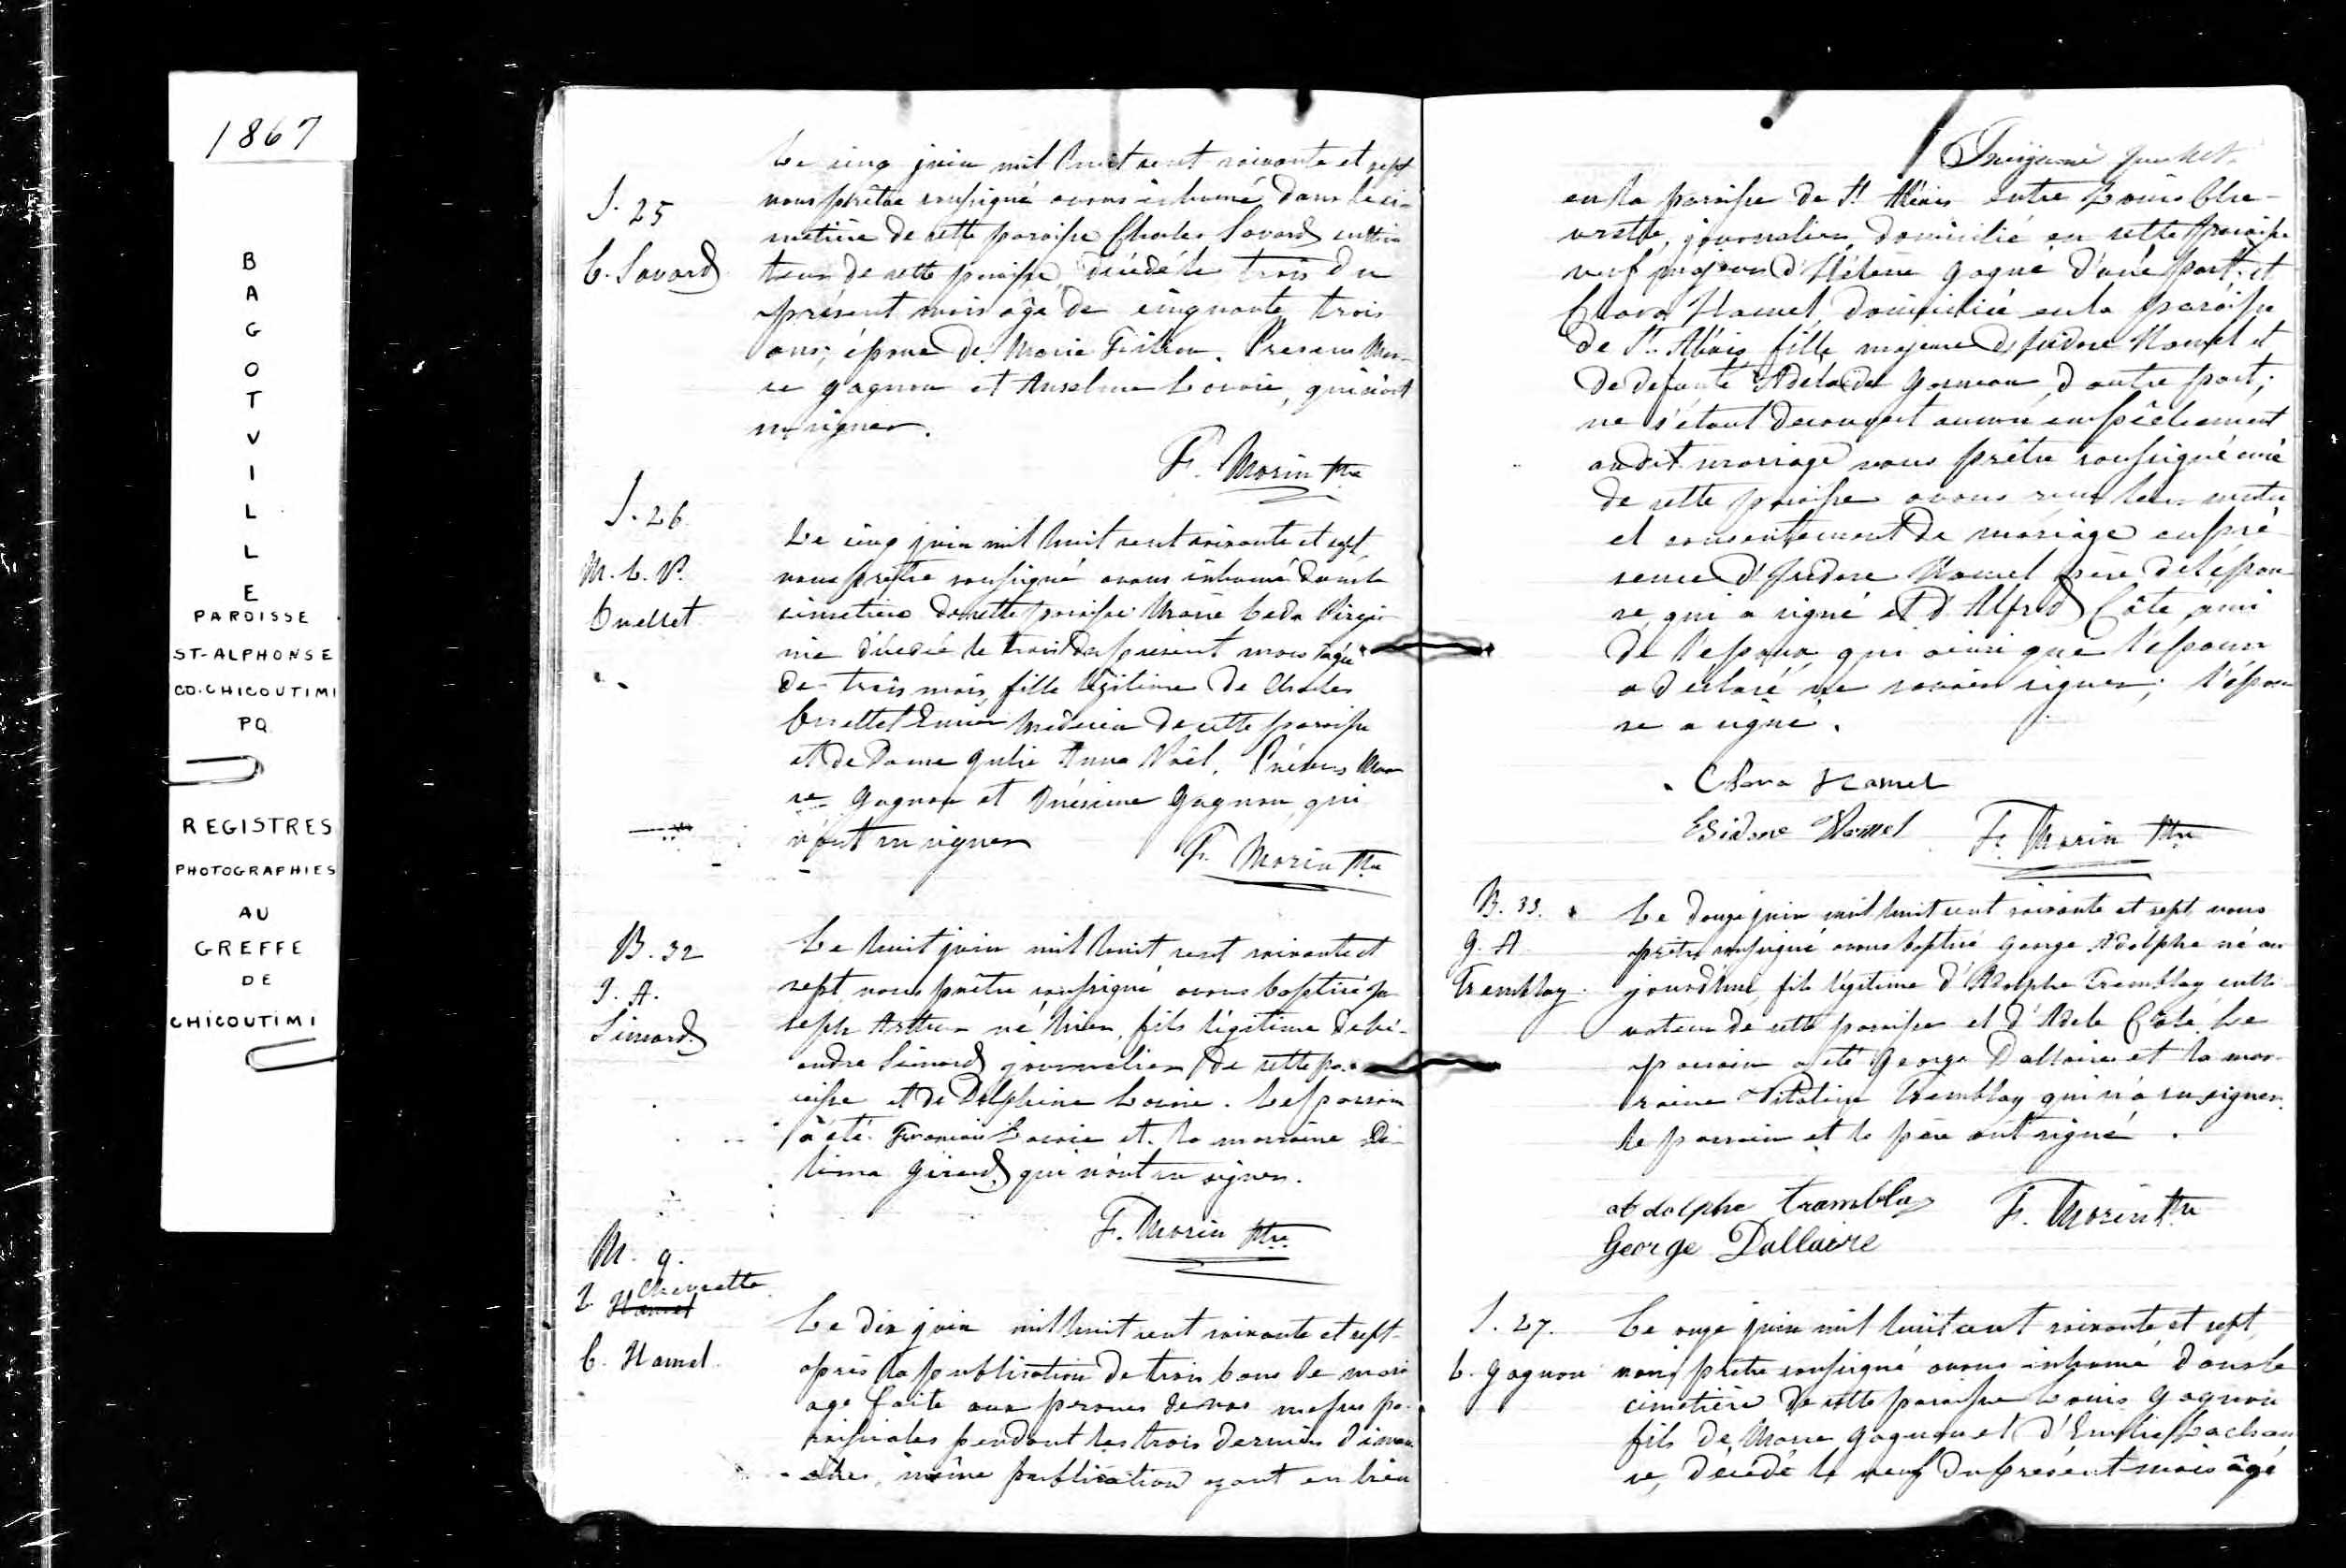 1867
BAGOTVILLE
PAROISSE
ST-ALPHONSE
CO. CHICOUTIMI
PQ
REGISTRES
PHOTOGRAPHIES
AU
GREFFE
DE
CHICOUTIMI
S. 25
C. Savard
Le cinq juin mil huit cent soixante et sept
nous prêtre soussigné avons inhumé dans le ci-
metière de cette paroisse Charles Savard cultiva
teur de cette paroisse, décédé le trois du
présent mois âgé de cinquante trois
ans, époux de Marie . Présens Mar-
ce Gagnon et Anselme Lavoie, qui n'ont
su signer.
F. Morin Ptre
S. 26
M. C. V.
Ouellet
Le cinq juin mil huit cent soixante et sept,
nous prêtre soussigné avons inhumé dans le
cimetière de cette paroisse Marie Virgi-
nie décédée le trois du présent mois âgée
de trois mois, fille légitime de Charles
Ouellet Médecin de cette paroisse
et de Dame Julie Anna Noël. Présens Mar
ce Gagnon et Onésime Gagnon, qui
n'ont su signer
F. Morin Ptre
B. 32
J. A.
Simard
Le huit juin mil huit cent soixante et
sept nous prêtre soussigné avons baptisé Jo
seph Arthur né hier, fils légitime de Lé-
andre Simard journalier de cette pa-
roisse et de Delphine Lavoie. Le parrain
a été François Lavoie et la marraine De-
lima Girard, qui n'ont su signer.
F. Morin Ptre
M. 9.
L Chevrette
Hamel
C. Hamel
Le dix juin mil huit cent soixante et sept
après la publication de trois bans de mari
age faite aux prones de nos messes pa-
roissiales pendant les trois derniers diman
ches, même publication ayant eu lieu
feuillet
en la paroisse de St Alexis entre Louis Che-
vrette, journalier, domicilié en cette paroisse
veuf majeur d'Hélène Gagné d'une part, et
Clara Hamel, domiciliée en la paroisse
de St. Alexis, fille majeure d'Isidore Hamel et
de defunte Adelaide Garneau, d'autre part;
ne s'étant découvert aucun empêchement
au dit mariage nous prêtre soussigné curé
de cette paroisse avons reçu leur mutu
el consentement de mariage en pré
sence d'Isidore Hamel père de l'épou
se, qui a signé et d'Alfred Côté, ami
de l'époux, qui ainsi que l'époux
a déclaré ne savoir signer; l'épou
se a signé.
Clara Hamel
Esidore Hamel F. Morin Ptre
B. 33.
G. A
Tremblay
Le douze juin mil huit cent soixante et sept nous
prêtre soussigné avons baptisé George Adolphe né au
jourd'hui, fils légitime d'Adolphe Tremblay culti
vateur de cette paroisse et d'Adele Côté. Le
parrain a été George Dallaire et la mar
raine Vitaline Tremblay qui n'a su signer.
le parrain et le père ont signé.
Adolphe Tramblay F. Morin Ptre
George Dallaire
S. 27.
L. Gagnon
Le onze juin mil huit cent soixante et sept,
nous prêtre soussigné avons inhumé dans le
cimetière de cette paroisse Louis Gagnon
fils de Marce Gagnon et d'Emilie Lachan
ce, décédé le neuf du présent mois âgé